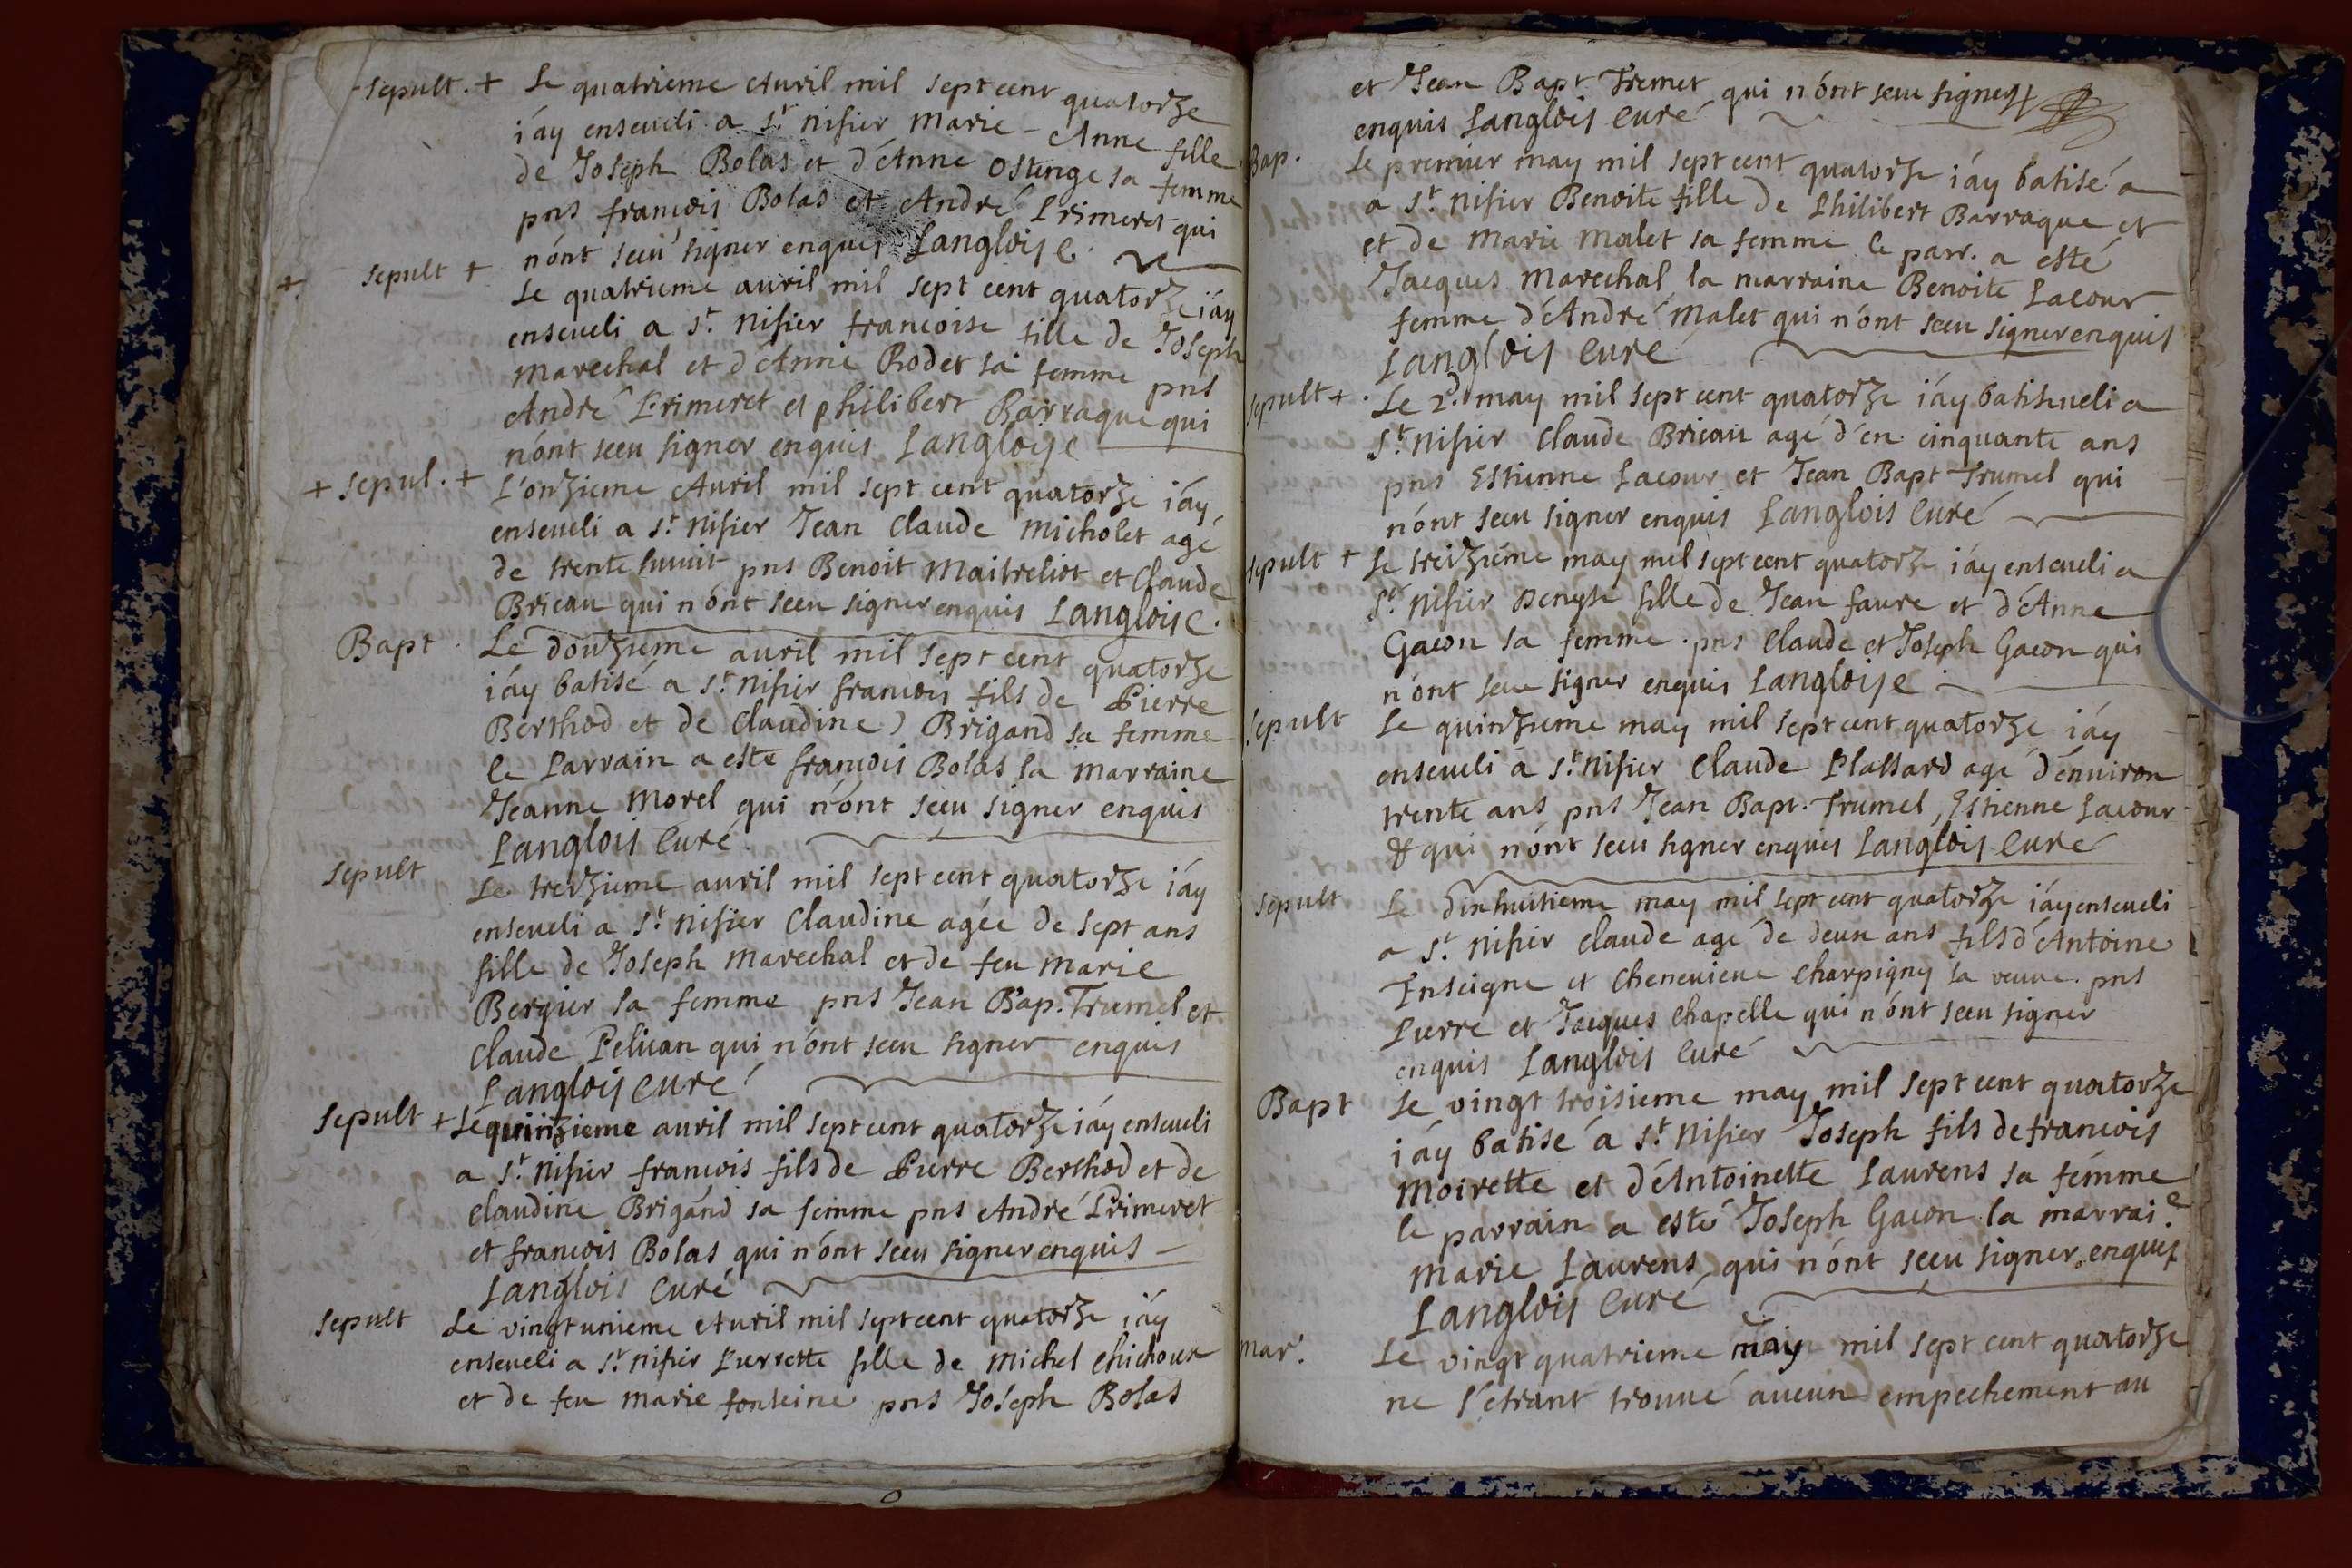 sepult. + Le quatrieme Auril mil sept cent quatorze
i'ay enseueli a St nisier Marie-Anne fille
de Joseph Bolas et d'Anne Ostenge sa femme
pns francois Bolas et André Primeret qui
n'ont sceu signer enquis Langlois C.
+ sepult + Le quatrieme auril mil sept cent quatorze i'ay
enseueli a St. Nisier francoise fille de Joseph
Marechal et d'Anne Rodet sa femme pns
André Primeret et philibert Barraque qui
n'ont sceu signer enquis Langlois C
+ sepul. + L'onzieme Auril mil sept cent quatorze i'ay
enseueli a St. Nisier Jean Claude Micholet agé
de trente huuit pns Benoit Maitreliot et Claude
Bricau qui n'ont sceu signer enquis Langlois C.
Bapt. Le douzieme auril mil sept cent quatorze
i'ay batisé a St. Nisier francois fils de Pierre
Berthod et de Claudine Brigand sa femme
le Parrain a este francois Bolas la marraine
Jeanne Morel qui n'ont sceu signer enquis
Langlois Curé
sepult Le treizieme auril mil sept cent quatorze i'ay
enseueli a St. Nisier Claudine agée de sept ans
fille de Joseph Marechal et de feu Marie
Bergier sa femme pns Jean Bap. Trumel et
Claude Peliuan qui n'ont sceu signer enquis
Langlois Curé
sepult + Le quinzieme auril mil sept cent quatorze i'ay enseueli
a St. Nisier francois fils de Pierre Berthod et de
Claudine Brigand sa femme pns André Primeret
et francois Bolas qui n'ont sceu signer enquis
Langlois Curé
sepult Le vingtunieme Auril mil sept cent quatorze i'ay
enseueli a St. Nisier Pierrette fille de Michel Chichoux
et de feu Marie fonteine pns Joseph Bolas
et Jean Bapt. Tremet qui n'ont sceu signer
enquis Langlois Curé
Bap. Le premier may mil sept cent quatorze i'ay batisé a
a St. Nisier Benoite fille de Philibert Barraque et
et de Marie Malet sa femme le parr. a esté
Jacques Marechal la marraine Benoite Lacour
femme d'André Malet qui n'ont sceu signer enquis
Langlois Curé
sepult +. Le 2.d may mil sept cent quatorze i'ay batihueli a
St. Nisier Claude Bricau agé d'en cinquante ans
pns Estienne Lacour et Jean Bapt Trumel qui
n'ont sceu signer enquis Langlois Curé
sepult + Le treizieme may mil sept cent quatorze i'ay enseueli a
St. Nisier Denyse fille de Jean faure et d'Anne
Gacon sa femme. pns Claude et Joseph Gacon qui
n'ont sceu signer enquis Langlois C
sepult Le quinzieme may mil sept cent quatorze i'ay
enseueli a St. Nisier Claude Plassard agé d'enuiron
trente ans pns Jean Bapt. Trumel, Estienne Lacour
& qui n'ont sceu signer enquis Langlois Curé
sepult Le dixhuitieme may mil sept cent quatorze i'ay enseueli
a St. Nisier Claude agé de deux ans fils d'Antoine
Enseigne et Cheneuieue Charpigny sa veuve. pns
Pierre et Jacques Chapelle qui n'ont sceu signer
enquis Langlois Curé
Bapt Le vingt troisieme may mil sept cent quatorze
i'ay batisé a St. Nisier Joseph fils de francois
Moirette et d'Antoinette Laurens sa femme
le parrain a esté Joseph Gacon la marrai.e
Marie Laurens qui n'ont sceu signer enquis
Langlois Curé
Mar. Le vingt quatrieme may mil sept cent quatorze
ne s'etrant trouué aucun empechement au